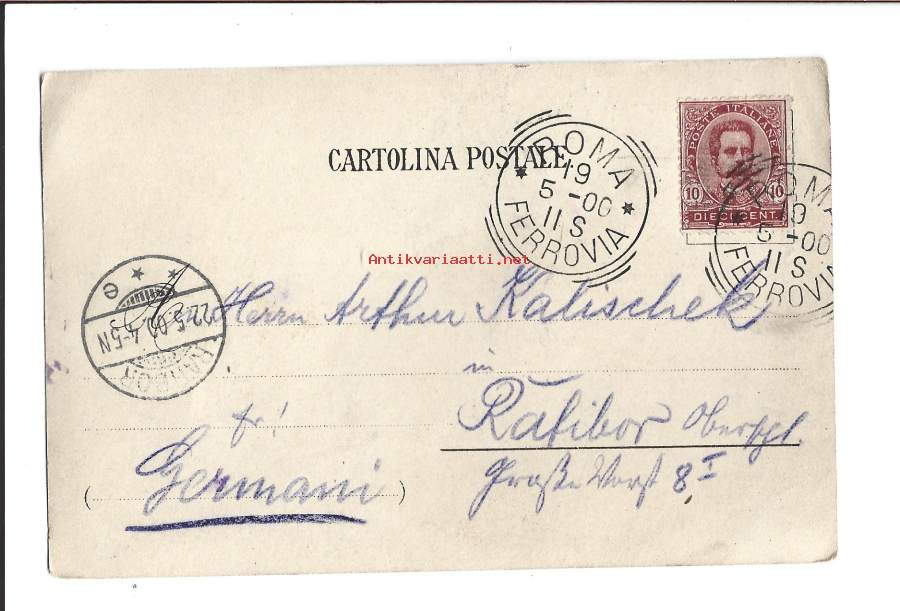 CARTOLINA POSTALE.
ROMA
19
5-00
11 S
FERROVIA
POSTE ITALIANE
10 10
DIECI CENT.
ROMA
19
5-00
11 S
FERROVIA
Antikvariaatti.net
RATIBOR
22.5.00 4-5N
Herrn Arthur Kalischek
in
Ratibor Oberschl.
Große Vorst 8 I
Germani